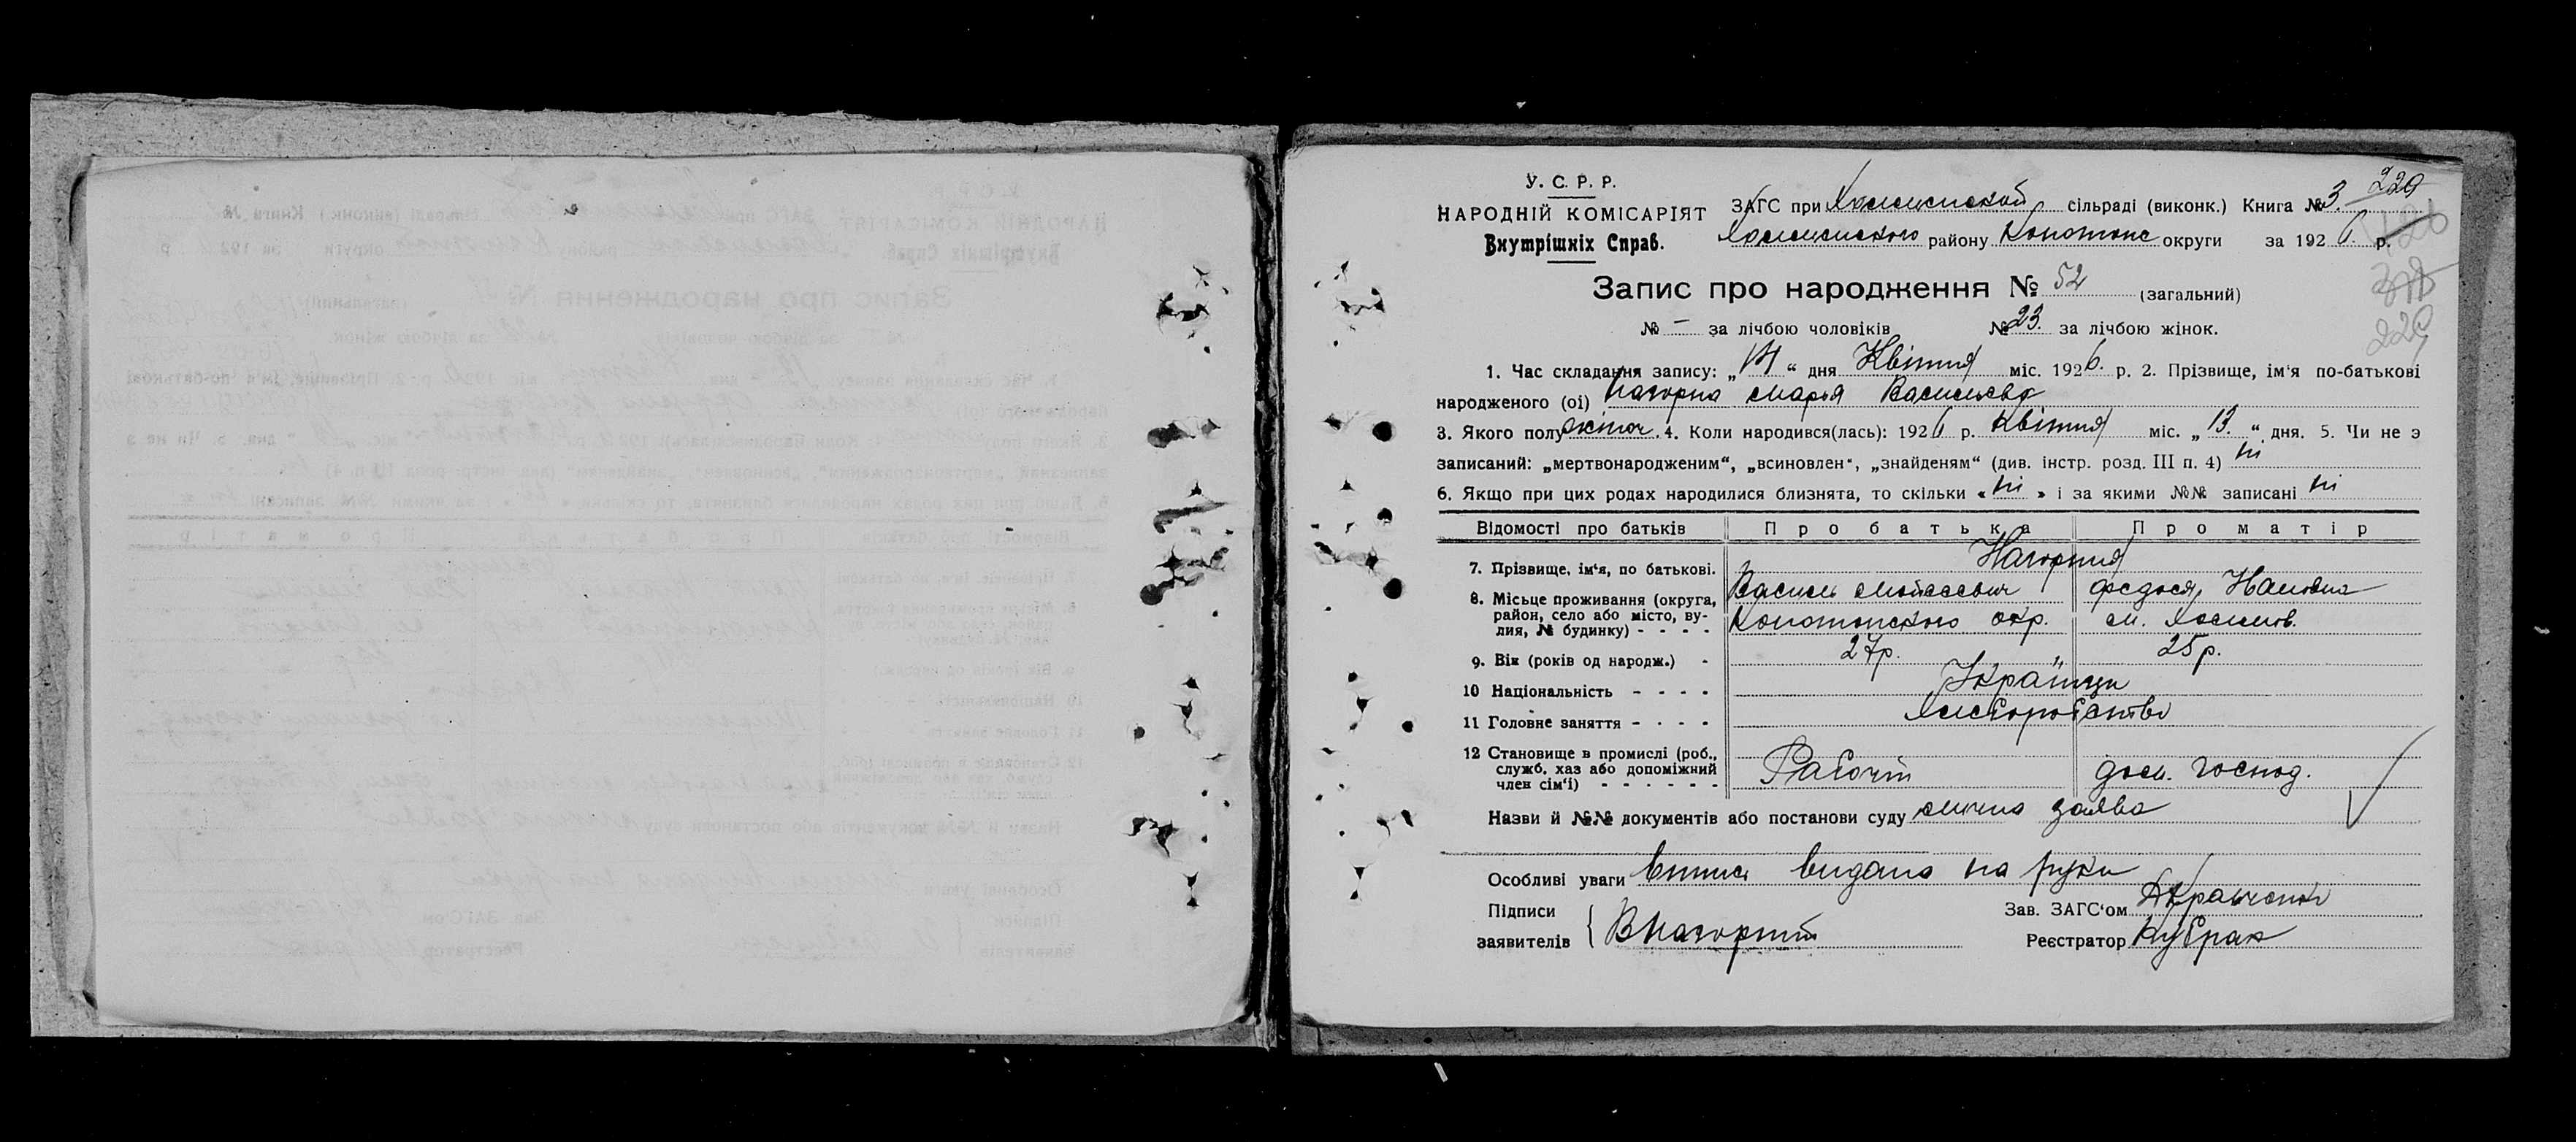 У. С. Р. Р.
НАРОДНІЙ КОМІСАРІЯТ
Внутрішніх Справ.
ЗАГС при сільраді (виконк.) Книга № 3. 229
району Конотопс округи за 1926 р.
229
Запис про народження № 52 (загальний)
№ — за лічбою чоловіків № 23. за лічбою жінок.
1. Час складання запису: „ “ дня Квітня міс. 1926. р. 2. Прізвище, ім‘я по-батькові
народженого (оі) Нагорна Марья Васильевна
3. Якого полу жіноч. 4. Коли народився(лась): 1926 р. Квітня міс. „13.“ дня. 5. Чи не э
записаний: „мертвонародженим“, „всиновлен“, „знайденям“ (див. інстр. розд. III п. 4) Ні
6. Якщо при цих родах народилися близнята, то скільки « Ні » і за якими №№ записані Ні
Відомості про батьків Про батька Про матір
7. Прізвище, ім‘я, по батькові. Нагорния
Василь Федося
8. Місьце проживання (округа, район, село або місто, вулия, № будинку) - - - - Конотопского окр. см.
9. Вік (років од народж.) - 27р. 25р.
10 Національність - - - - Українци
11 Головне заняття - - - - Хлеборобство
12 Становище в промислі (роб., служб. хаз або допоміжний член сім‘і) - - - - - - Рабочий дом. господ.
Назви й №№ документів або постанови суду заява
Особливі уваги Витис видана на руки
Підписи
заявителів { ВНагорний
Зав. ЗАГС‘ом Кравченко
Реєстратор Кубрак